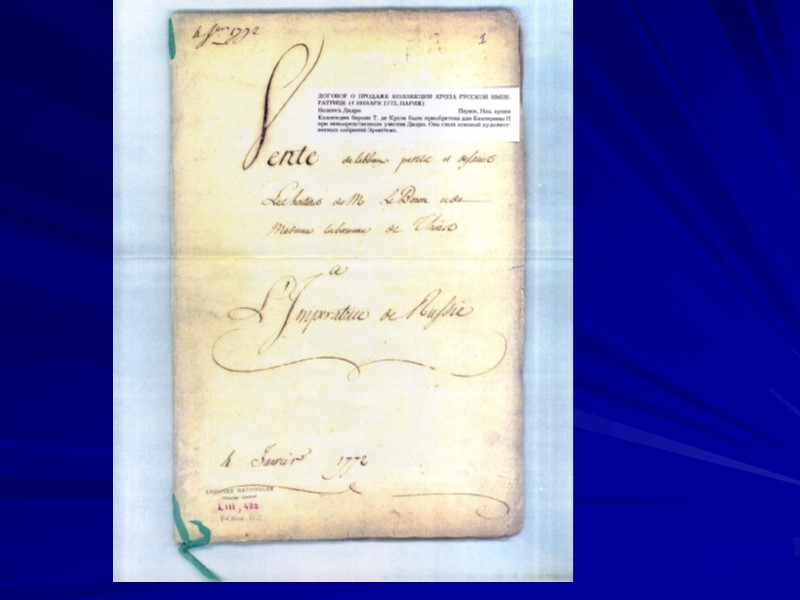 4 Janr 1772
1
ДОГОВОР О ПРОДАЖЕ КОЛЛЕКЦИИ КРОЗА РУССКОЙ ИМПЕ-
РАТРИЦЕ (4 ЯНВАРЯ 1772, ПАРИЖ)
Подпись Дидро Париж, Нац. архив
Коллекция барона Т. де Кроза была приобретена для Екатерины II
при непосредственном участии Дидро. Она стала основой художест-
венных собраний Эрмитажа.
Vente de et
de M Le Baron
Madame de Thiers
a
L'Imperatrice de Russie
4 Janvier 1772
ARCHIVES NATIONALES
LIII, 492